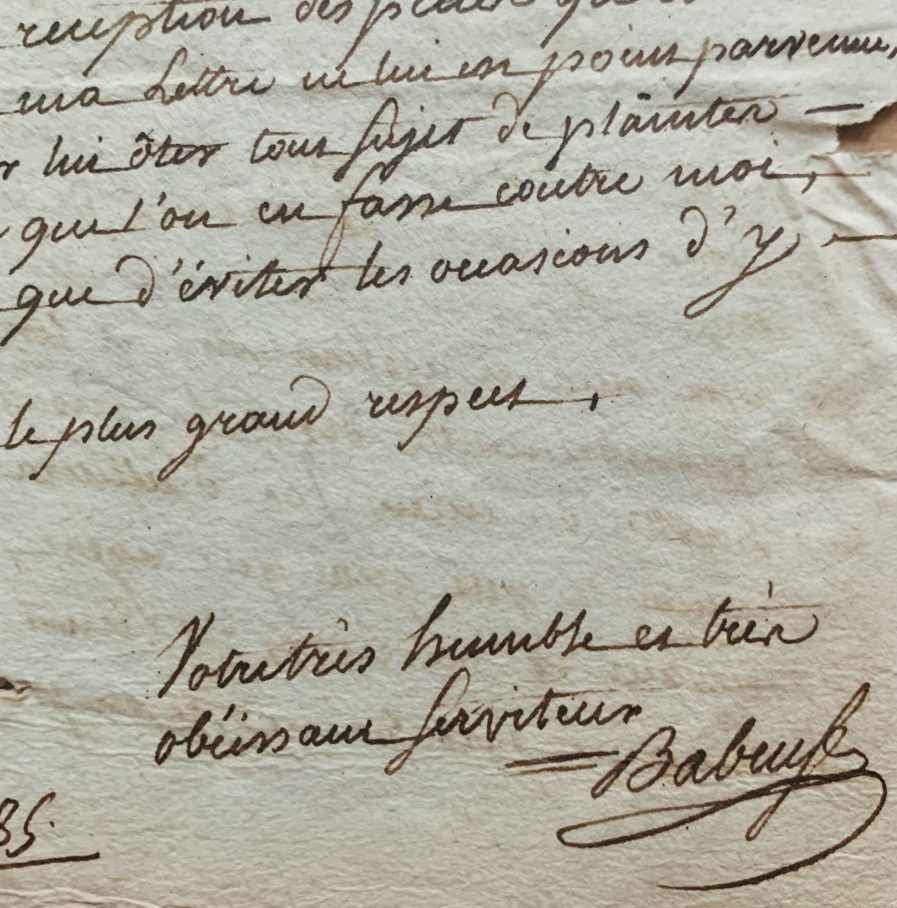 reception des pieces que
ma Lettre ne lui est point parvenue,
r lui ôter tout sujet de plainter —
que l'on en fasse contre moi,
que d'éviter les occasions d'y —
le plus grand respect,
Votre très humble et trèr
obéissant serviteur
Babeuf
85.